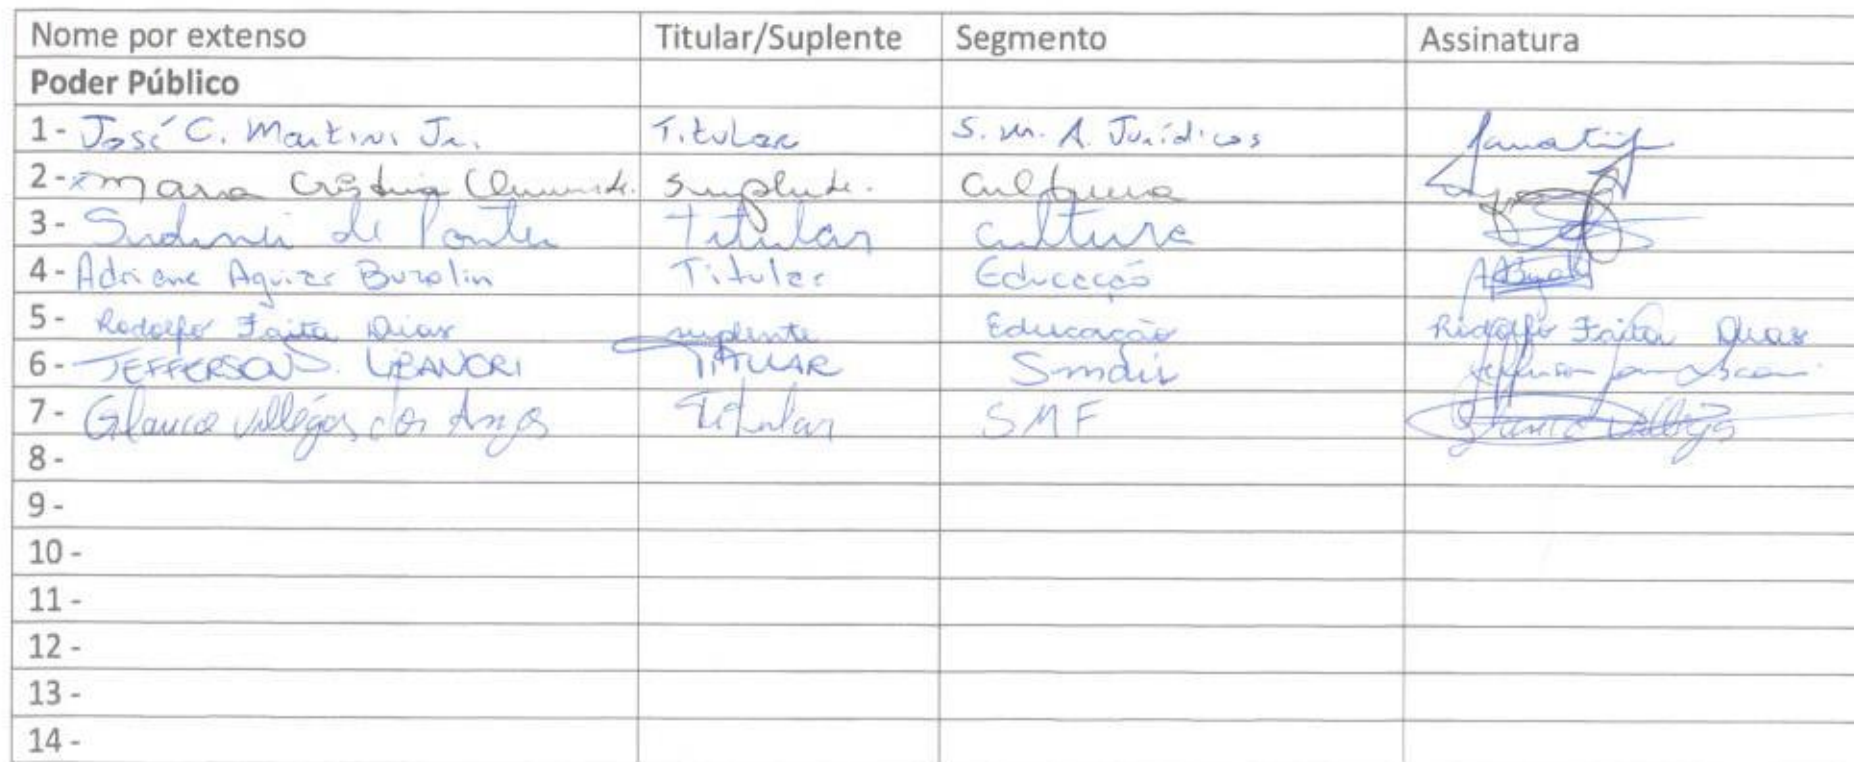 Nome por extenso Titular/Suplente Segmento Assinatura
Poder Público
1 - José C. Martins Jr. Titular S. M. A. Jurídicos
2 - Maria Cristina Suplente. Cultura
3 - de Titular Cultura
4 - Adriane Aguiar Buzolin Titular Educação
5 - Rodolfo Faita Dias suplente Educação Rodolfo Faita Dias
6 - JEFFERSON TITULAR Smdis
7 - Glauco Villegas dos Anjos Titular SMF
8 -
9 -
10 -
11 -
12 -
13 -
14 -